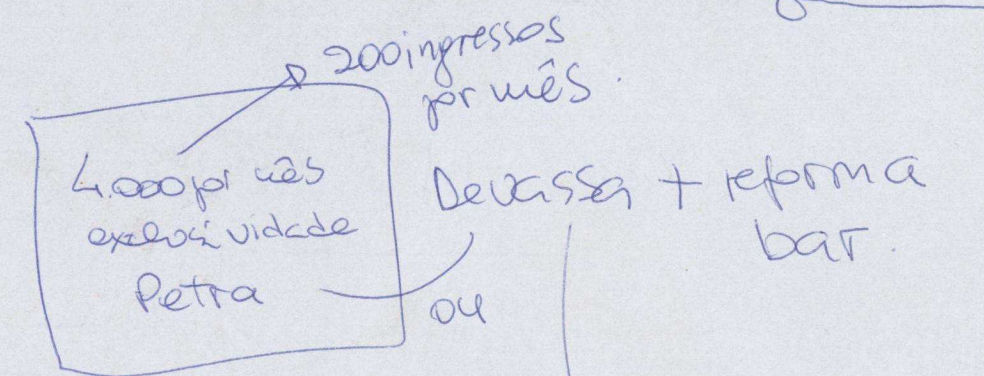 200 ingressos
por mês.
4.000 por mês
exclusividade
Petra
ou
Devassa + reforma
bar.